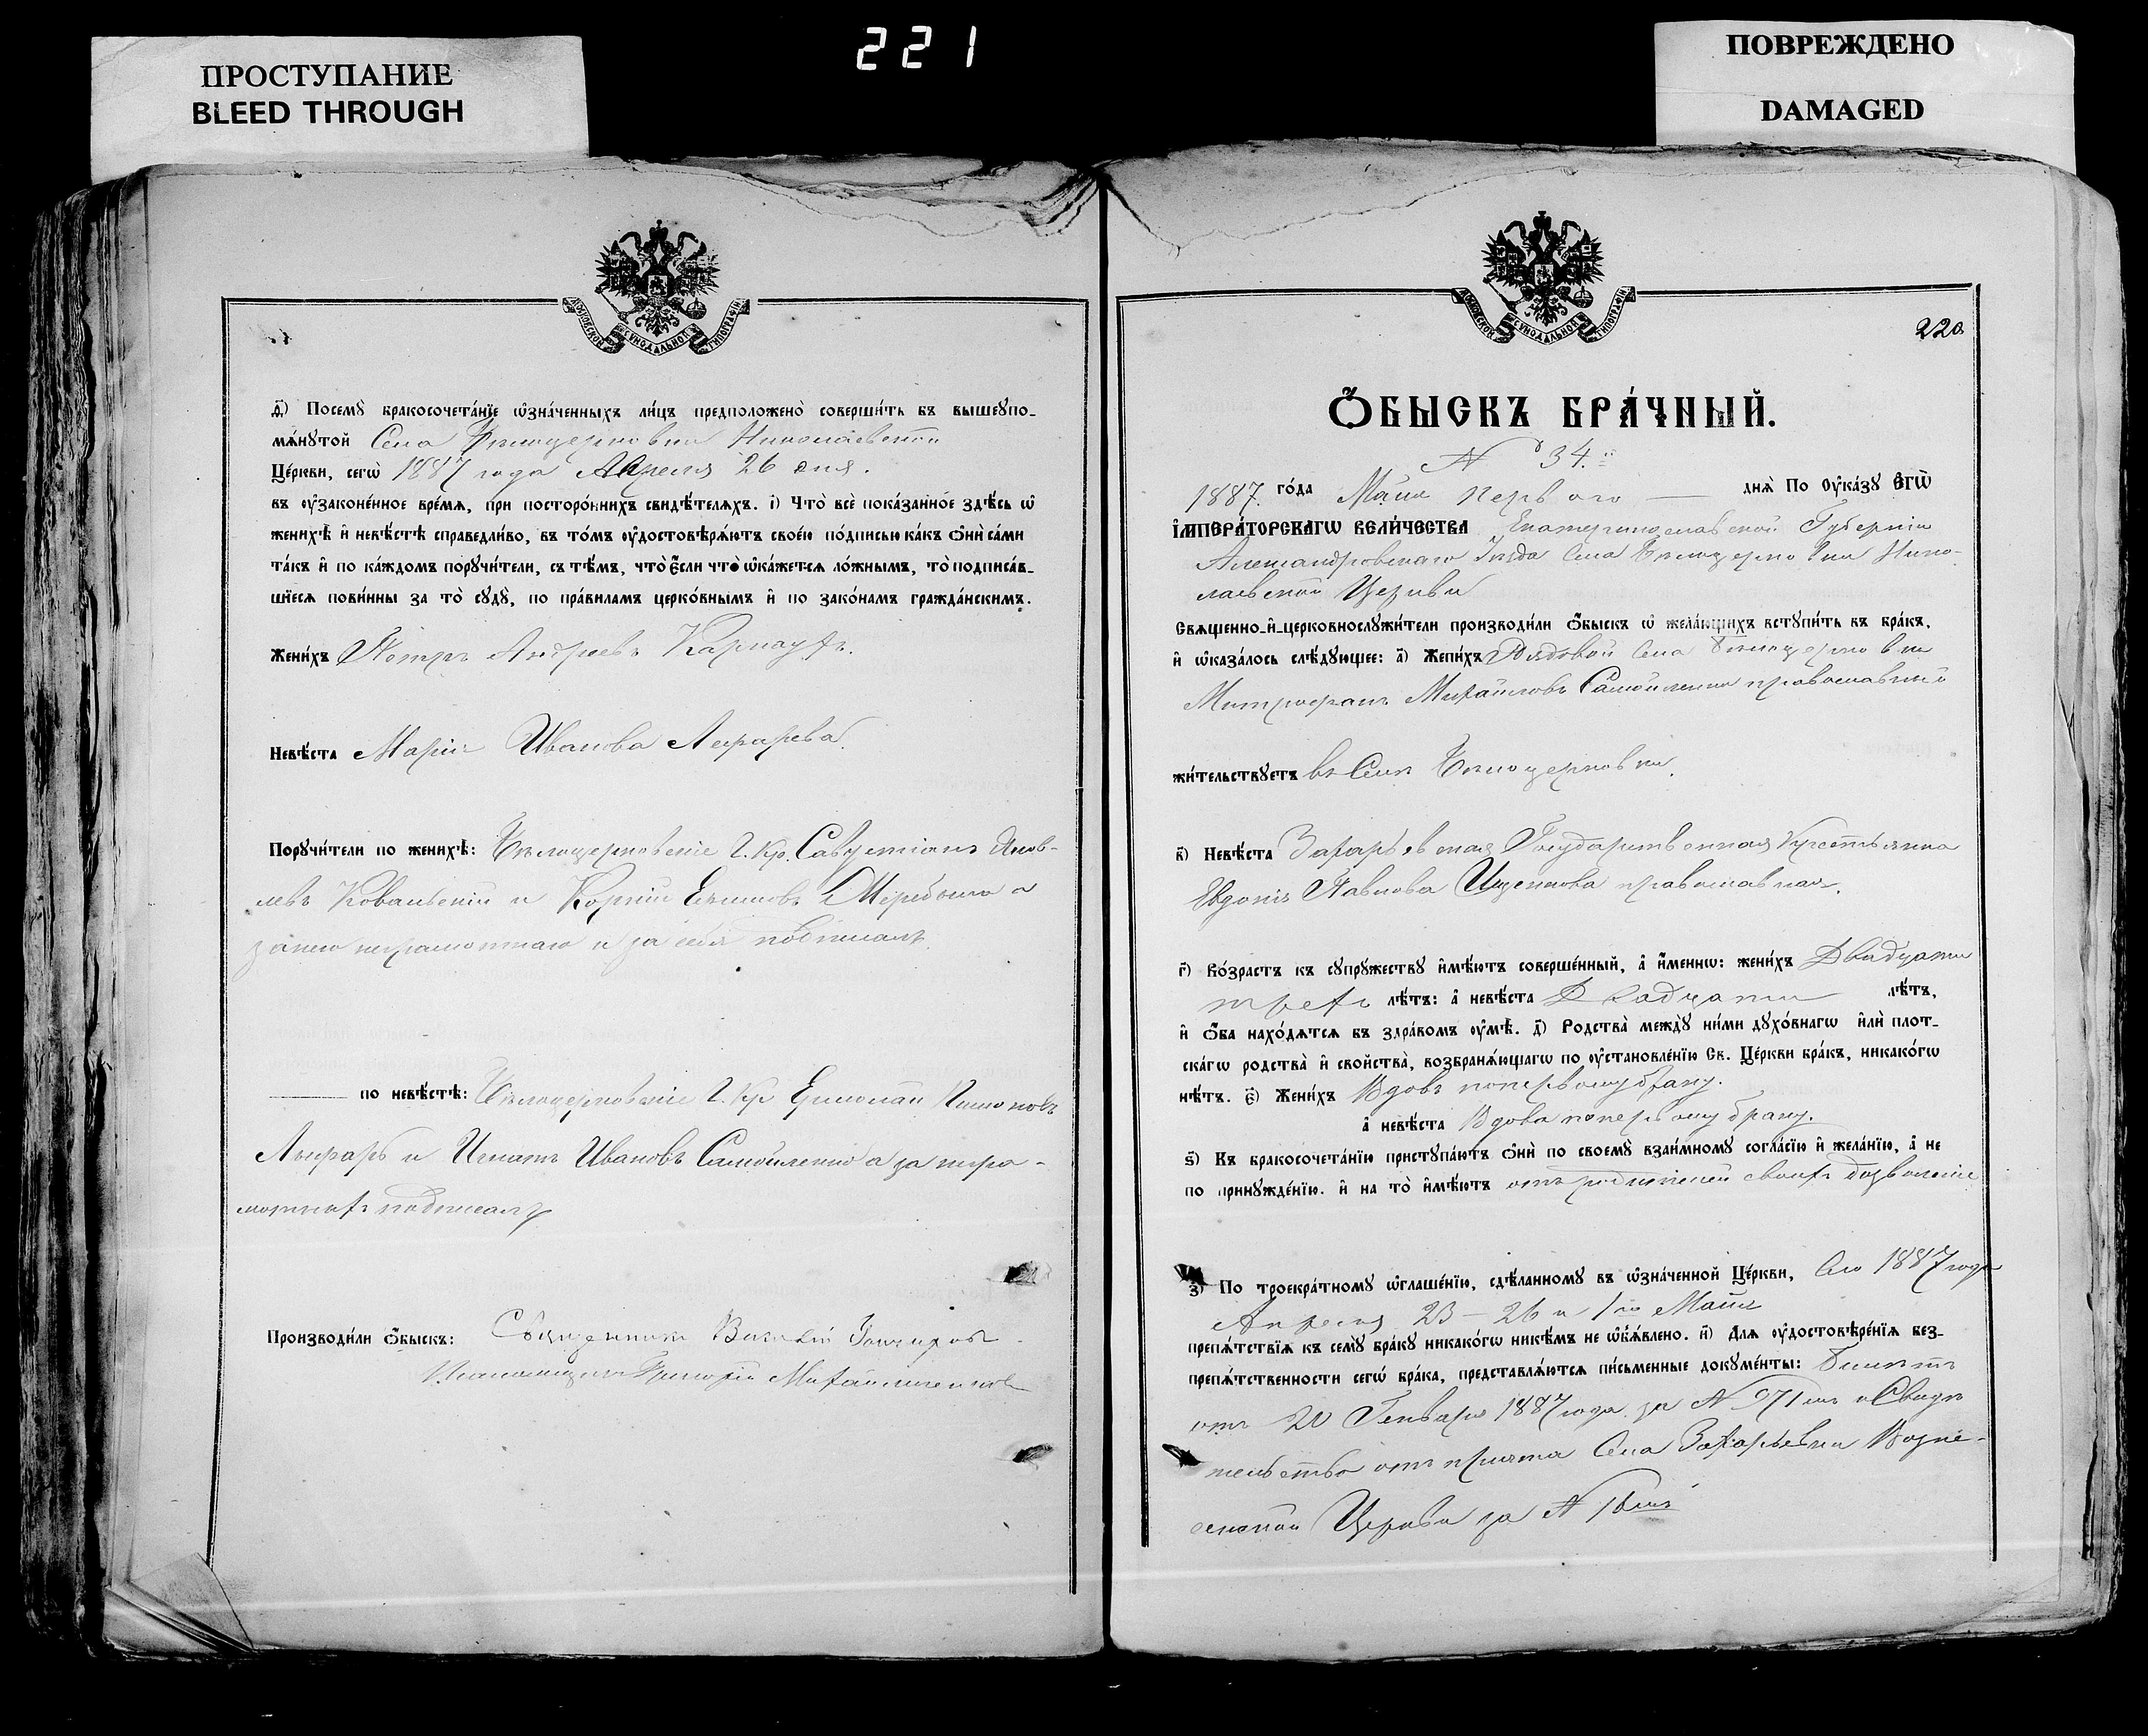 ПРОСТУПАНИЕ
BLEED THROUGH
221
ПОВРЕЖДЕНО
DAMAGED
МОСКОВСКОЙ СУНОДАЛЬНОЙ ТИПОГРАФІИ
д҃) Посемꙋ̀ бракосочета́нїе ѡ҆зна́ченныхъ ли́цъ предположено̀ соверши́ть въ вышеꙋпо-
мѧ́нꙋтой Села Бѣлоцерковки Николаевской
Це́ркви, сегѡ̀ 1887 года Апреля 26 дня.
въ ᲂу҆законе́нное вре́мѧ, при посторо́ннихъ свидѣ́телѧхъ. і҃) Что̀ всѐ пока́занное здѣ́сь ѡ҆
женихѣ̀ и҆ невѣ́стѣ справедли́во, въ то́мъ ᲂу҆достовѣрѧ́ютъ свое́ю по́дписью ка́къ ѻ҆нѝ са́ми
та́къ и҆ по ка́ждомъ порꙋчи́тели, съ тѣ́мъ, что̀ є҆́сли что̀ ѡ҆ка́жетсѧ ло́жнымъ, то̀ подписа́в-
шїесѧ пови́нны за то̀ сꙋдꙋ̀, по пра́виламъ церко́внымъ и҆ по зако́намъ гражда́нскимъ.
Жени́хъ Петръ Андреевъ Карнаухъ.
Невѣ́ста Марія Иванова Лихарева.
Порꙋчи́тели по женихѣ̀: Бѣлоцерковскіе Г. Кр. Яков-
левъ и Корній а
за него неграмотнаго и за себя подписалъ.
по невѣ́стѣ: Бѣлоцерковскіе Г. Кр Ермолай
и Игнатъ Ивановъ Самойленко а за негра-
мотныхъ подписалъ
Производи́ли ѻ҆́быскъ: Священникъ
Псаломщикъ Григорій Михайличенко
МОСКОВСКОЙ СУНОДАЛЬНОЙ ТИПОГРАФІИ
220
Ѻ҆́БЫСКЪ БРА́ЧНЫЙ.
N 34.й
1887. го́да Мая перваго — днѧ̀ По ᲂу҆ка́зꙋ Є҆ГѠ̀
І҆МПЕРА́ТОРСКАГѠ ВЕЛИ́ЧЕСТВА Екатеринославской Губерніи
Александровскаго Уѣзда Села Бѣлоцерковки Нико-
лаевской Церкви
Свѧщенно-и҆-церковнослꙋжи́тели производи́ли ѻ҆́быскъ ѡ҆ жела́ющихъ встꙋпи́ть въ бра́къ,
и҆ ѡ҆каза́лось слѣ́дꙋющее: а҃) Жени́хъ Рядовой Села Бѣлоцерковки
Митрофанъ Михайловъ Самойленко православный
жи́тельствꙋетъ въ Селѣ Бѣлоцерковки.
в҃) Невѣ́ста Захарьевская Государственная Крестьянка
Евдокія Павлова Ищенкова православная.
г҃) Во́зрастъ къ сꙋпрꙋ́жествꙋ и҆мѣ́ютъ соверше́нный, а҆ и҆́меннѡ: жени́хъ Двадцати
трехъ лѣ́тъ: а҆ невѣ́ста Двадцати лѣ́тъ,
и҆ ѻ҆́ба нахо́дѧтсѧ въ здра́вомъ ᲂу҆мѣ̀. д҃) Родства̀ междꙋ̀ ни́ми дꙋхо́внагѡ и҆лѝ плот-
ска́гѡ родства̀ и҆ свойства̀, возбранѧ́ющагѡ по ᲂу҆становле́нїю Св. Це́ркви бра́къ, никако́гѡ
нѣ́тъ. є҃) Жени́хъ Вдовъ по первому браку.
а҆ невѣ́ста Вдова по первому браку.
ѕ҃) Къ бракосочета́нїю пристꙋпа́ютъ ѻ҆нѝ по своемꙋ̀ взаи́мномꙋ согла́сїю и҆ жела́нїю, а҆ не
по принꙋжде́нїю. и҆ на то̀ и҆мѣ́ютъ отъ родителей своихъ дозволеніе
з҃) По троекра́тномꙋ ѡ҆глаше́нїю, сдѣ́ланномꙋ въ ѡ҆зна́ченной Це́ркви, Сего 1887 года
Апреля 23 — 26 и 1го Мая
препѧ́тствїѧ къ семꙋ̀ бра́кꙋ никако́гѡ никѣ́мъ не ѡ҆б̾ѧ́влено. и҃) Длѧ ᲂу҆достовѣре́нїѧ без-
препѧ́тственности сегѡ́ бра́ка, представлѧ́ютсѧ пи́сьменные докꙋме́нты: билетъ
отъ 20 Генваря 1887 года за N 971мъ и Свидѣ
тельство отъ причта Села Захарьевки Возне-
сенской Церкви за N